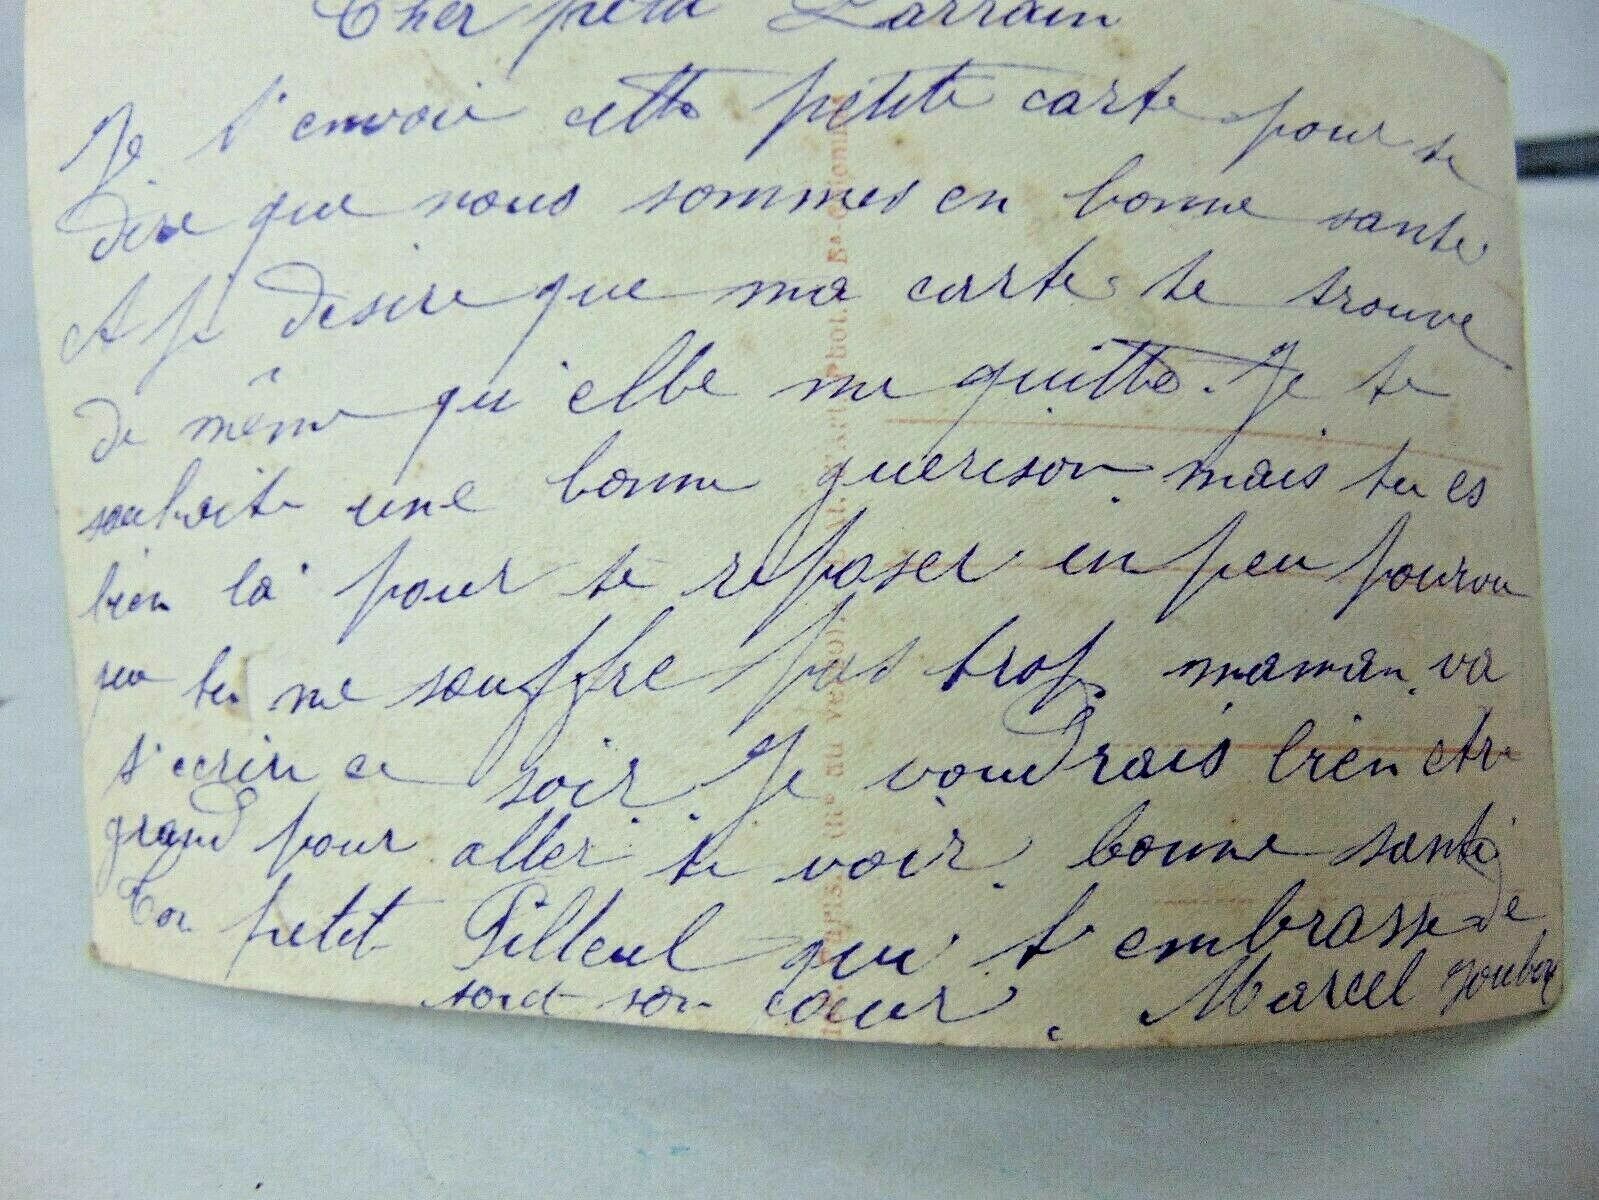 Cher petit Parrain
Je t'envoie cette petite carte pour te
dire que nous sommes en bonne santé
et je desire que ma carte te trouve
de même qu'elle me quitte. Je te
souhaite une bonne guerison. mais tu es
bien là pour te reposer un peu pourvu
que tu ne souffre pas trop. maman va
t'ecrire ce soir. Je voudrais bien etre
grand pour aller te voir. bonne santé
Ton petit Filleul qui t'embrasse de
tout son cœur. Marcel